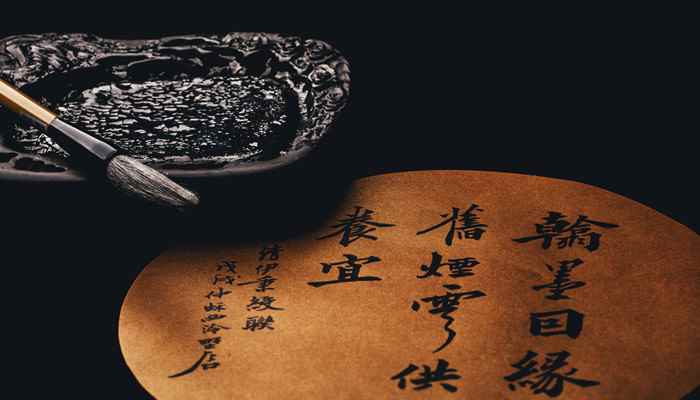 翰墨因緣
舊煙雲供
養宜
伊秉綬聯
戊戌仲西泠